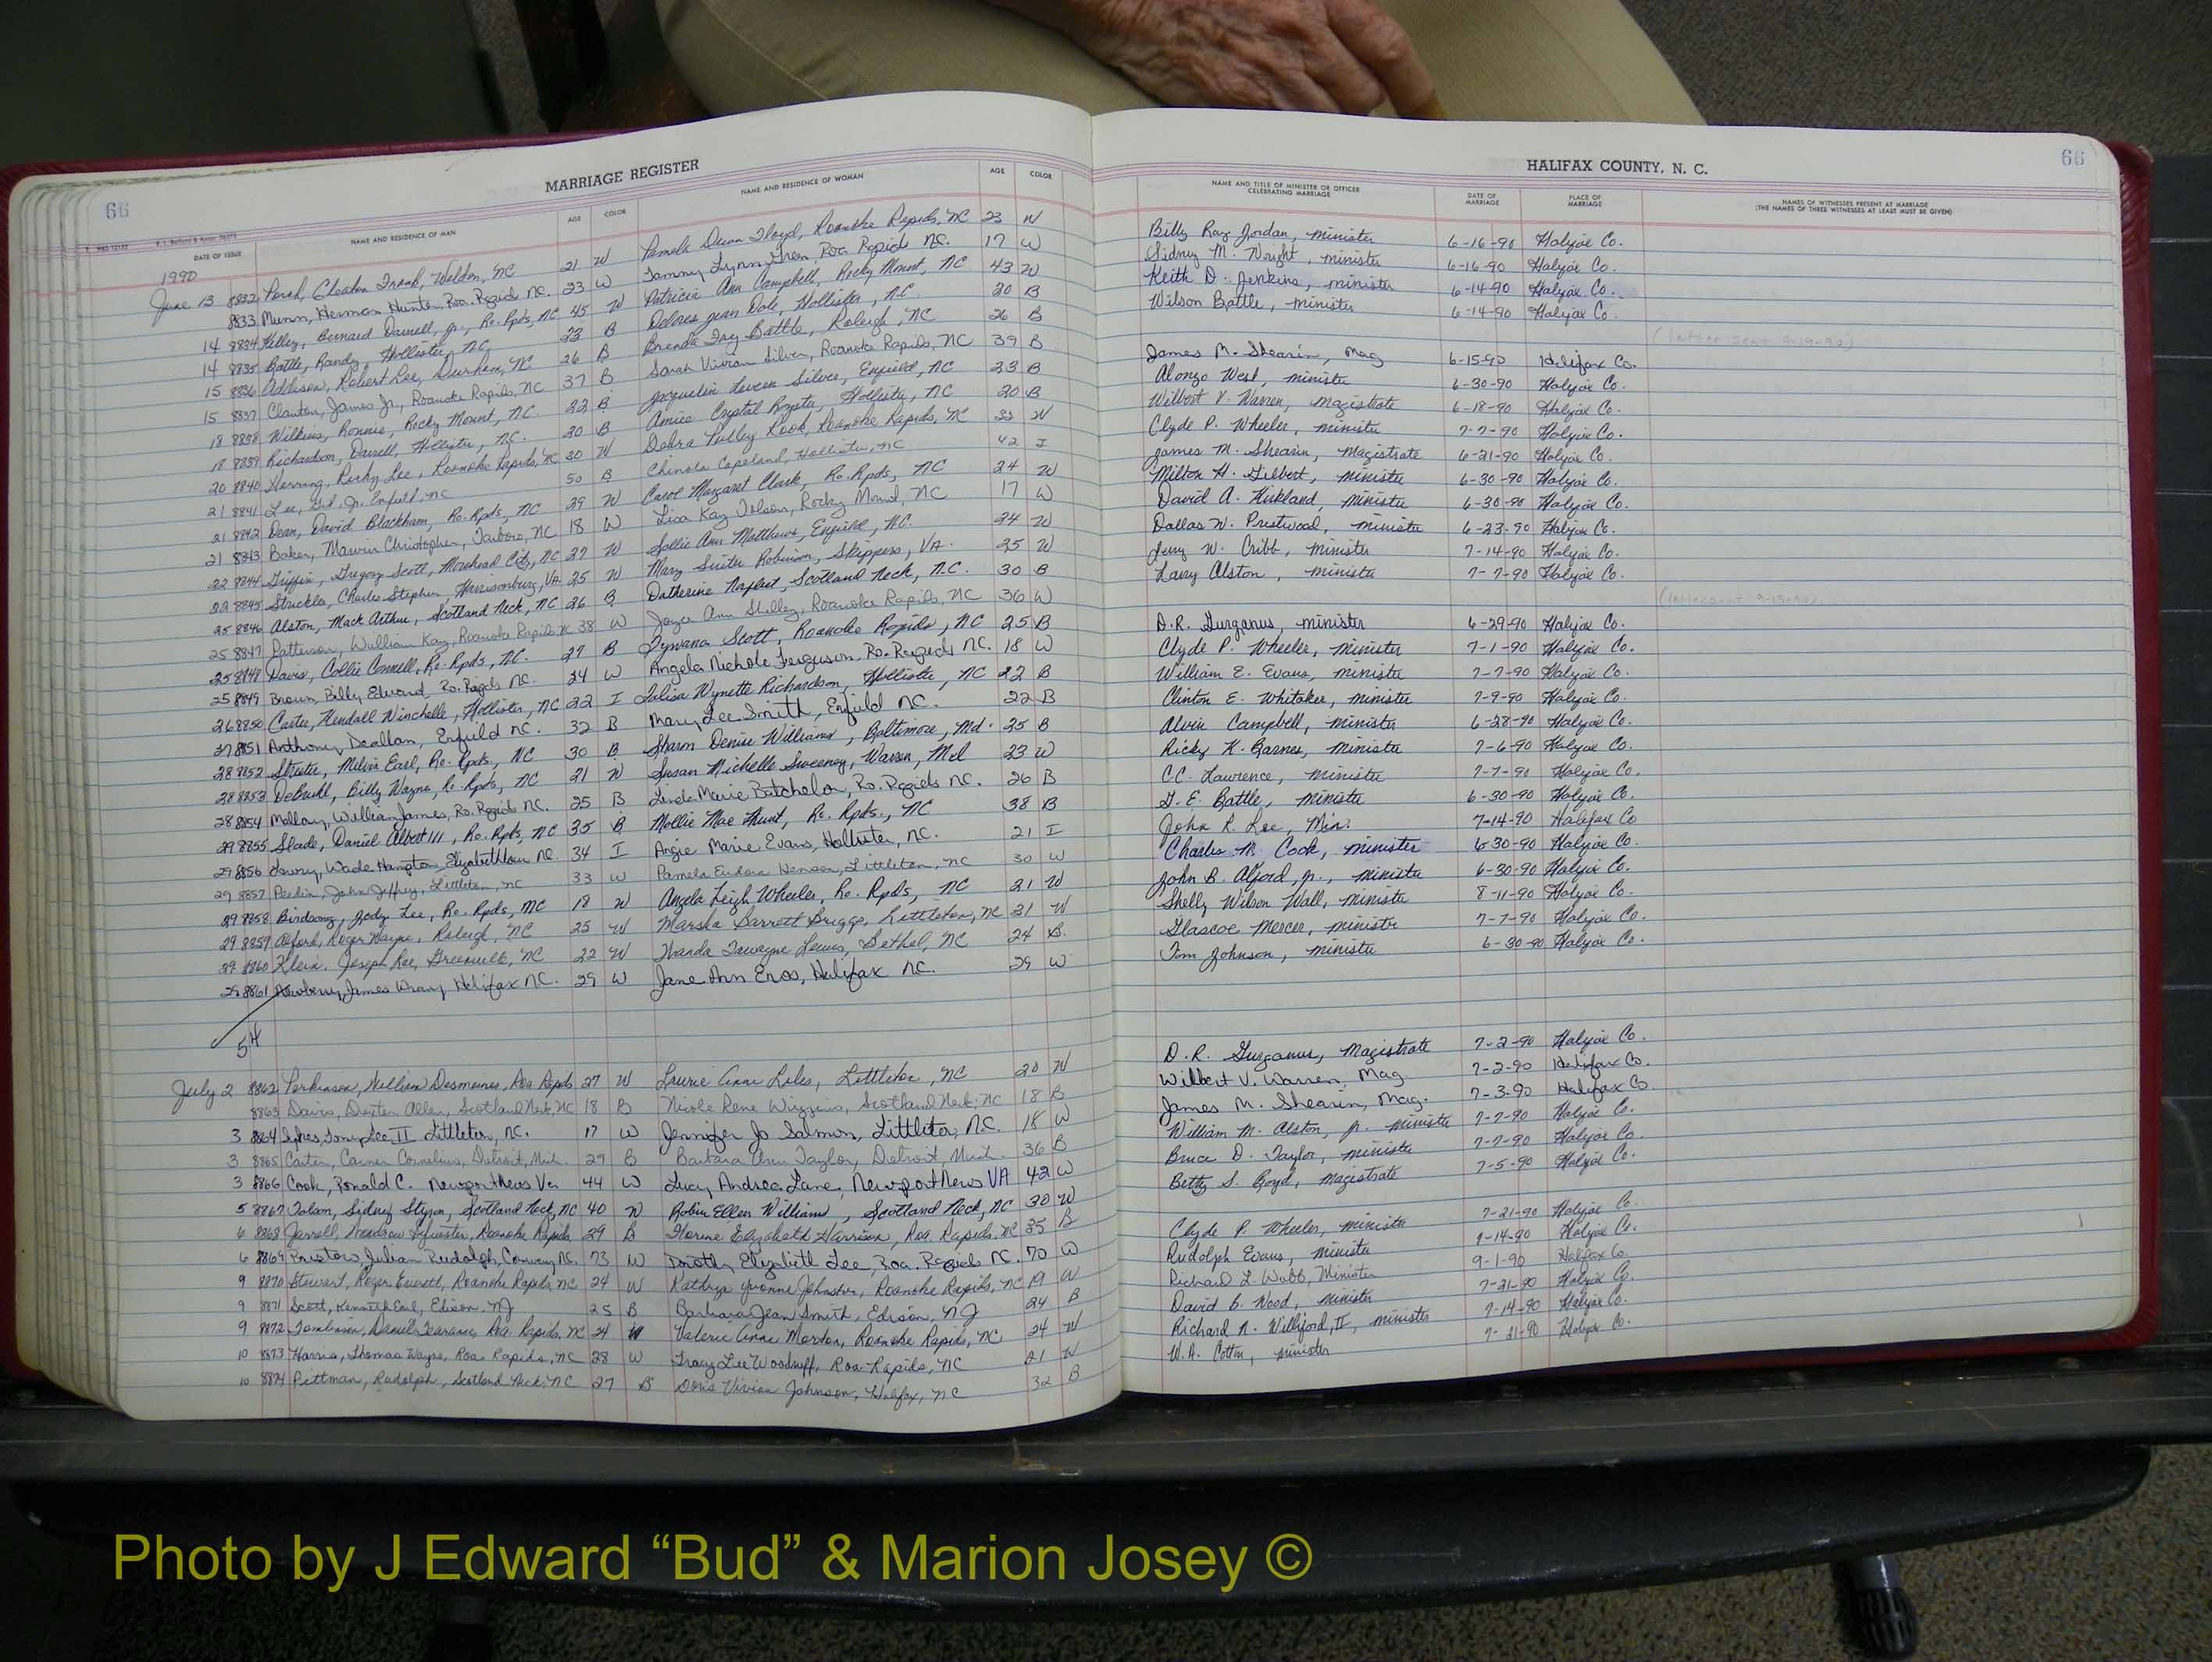 66
MARRIAGE REGISTER
DATE OF ISSUE NAME AND RESIDENCE OF MAN AGE COLOR NAME AND RESIDENCE OF WOMAN AGE COLOR
1990
June 13 8832 Frank, Weldon, NC 21 W Pamela Dawn Floyd, Roanoke Rapids, NC 23 W
8833 Munn, Herman Hunter, Roa. Rapids NC. 23 W Tammy Lynn Green, Roa Rapids NC. 17 W
14 8834 Kelley, Bernard Darrell, Jr., Ro. Rpds, NC 45 W Patricia Ann Campbell, Rocky Mount, NC 43 W
14 8835 Battle, Randy, Hollister, NC 23 B Delores Jean Dole, Hollister, N.C. 20 B
15 8836 Addison, Robert Lee, Durham, NC 26 B Brenda Battle, Raleigh, NC 26 B
15 8837 Clanton, James Jr., Roanoke Rapids, NC 37 B Sarah Vivian Silver, Roanoke Rapids, NC 39 B
18 8838 Wilkins, Ronnie, Rocky Mount, NC. 22 B Silver, Enfield, NC 23 B
18 8839 Richardson, Darrell, Hollister, NC. 20 B Amice Crystal Hollister, NC 20 B
20 8840 Herring, Ricky Lee, Roanoke Rapids, NC 30 W Debra Pulley Rook, Roanoke Rapids, NC 33 W
21 8841 Lee, Jr. Enfield, NC 50 B Copeland, Hollister, NC 42 I
21 8842 Dean, David Blackham, Ro. Rpds, NC 29 W Carol Margaret Clark, Ro. Rpds, NC 24 W
21 8843 Baker, Marvin Christopher, Tarboro, NC 18 W Lisa Kay Tolson, Rocky Mount, NC 17 W
22 8844 Griffin, Gregory Scott, Morehead City, NC 27 W Sollie Ann Matthews, Enfield, NC. 24 W
22 8845 Strickler, Charles Stephen, Harrisonburg, VA 25 W Mary Suiter Robinson, Skippers, VA. 25 W
25 8846 Alston, Mack Arthur, Scotland Neck, NC 26 B Scotland Neck, N.C. 30 B
25 8847 Patterson, William Kay, Roanoke Rapids NC 38 W Joyce Ann Shelley, Roanoke Rapids, NC 36 W
25 8848 Davis, Collie Connell, Ro. Rpds, NC. 27 B Tywana Scott, Roanoke Rapids, NC 25 B
25 8849 Brown, Billy Edward, Ro. Rapids NC. 24 W Angela Nichole Ferguson, Ro. Rapids NC. 18 W
26 8850 Carter, Kendall Winchelle, Hollister, NC 22 I Talisa Wynette Richardson, Hollister, NC 22 B
27 8851 Anthony, Enfield NC. 32 B Mary Lee Smith, Enfield NC. 22 B
28 8852 Melvin Earl, Ro. Rpds, NC 30 B Sharon Denise Williams, Baltimore, Md. 25 B
28 8853 DeBuhl, Billy Wayne, Ro. Rpds, NC 21 W Susan Michelle Sweeney, Warren, Md 23 W
28 8854 William James, Ro. Rapids NC. 25 B Linda Marie Batchelor, Ro. Rapids NC. 26 B
29 8855 Slade, Daniel Albert III, Ro. Rpds, NC 35 B Mollie Mae Hunt, Ro. Rpds., NC 38 B
29 8856 Lowry, Wade Hampton, Elizabethtown NC. 34 I Angie Marie Evans, Hollister, NC. 21 I
29 8857 John Jeffrey, Littleton, NC 33 W Pamela Henson, Littleton, NC 30 W
29 8858 Birdsong, Jody Lee, Ro. Rpds, NC 18 W Angela Leigh Wheeler, Ro. Rpds, NC 21 W
29 8859 Alford, Roger Wayne, Raleigh, NC 25 W Marsha Barrett Briggs, Littleton, NC 21 W
29 8860 Klein, Joseph Lee, Greenville, NC 22 W Wanda Lewis, Bethel, NC 24 B.
29 8861 Newberry, James Halifax NC. 29 W Jane Ann Enos, Halifax NC. 29 W
54
July 2 8862 Perkinson, William Desmoines, Roa Rapids 27 W Laurie Anne Liles, Littleton, NC 20 W
8863 Davis, Dexter Allen, Scotland Neck, NC 18 B Nicole Rene Wiggins, Scotland Neck, NC 18 B
3 8864 Sykes, Lee II Littleton, NC. 17 W Jennifer Jo Salmon, Littleton, N.C. 18 W
3 8865 Carter, Cornelius, Detroit, Mich. 29 B Barbara Ann Taylor, Detroit, Mich. 36 B
3 8866 Cook, Ronald C. Newport News Va 44 W Lucy Andrea Lane, Newport News VA 42 W
5 8867 Tolson, Sidney Styron, Scotland Neck, NC 40 W Robin Ellen Williams, Scotland Neck, NC 30 W
6 8868 Jarrell, Sylvester, Roanoke Rapids, 29 B Elizabeth Harrison, Roa. Rapids, NC 35 B
6 8869 Bristow, Julian Rudolph, Conway NC. 73 W Dorothy Elizabeth Lee, Roa. Rapids NC. 70 W
9 8870 Stewart, Roger Everett, Roanoke Rapids, NC 24 W Kathryn Yvonne Johnston, Roanoke Rapids, NC 19 W
9 8871 Scott, Kenneth Earl, Edison, NJ 25 B Barbara Jean Smith, Edison, NJ 24 B
9 8872 Tomlinson, Daniel Roa. Rapids, NC 24 W Valerie Anne Morton, Roanoke Rapids, NC, 24 W
10 8873 Harris, Thomas Wayne, Roa. Rapids, NC 28 W Tracy Lee Woodruff, Roa. Rapids, NC 21 W
10 8874 Pittman, Rudolph, Scotland Neck, NC 27 B Doris Vivian Johnson, Halifax, NC 32 B
66
HALIFAX COUNTY, N. C.
NAME AND TITLE OF MINISTER OR OFFICER CELEBRATING MARRIAGE DATE OF MARRIAGE PLACE OF MARRIAGE NAMES OF WITNESSES PRESENT AT MARRIAGE (THE NAMES OF THREE WITNESSES AT LEAST MUST BE GIVEN)
Billy Ray Jordan, minister 6-16-90 Halifax Co.
Sidney M. Wright, minister 6-16-90 Halifax Co.
Keith D. Jenkins, minister 6-14-90 Halifax Co.
Wilson Battle, minister 6-14-90 Halifax Co.
(letter sent 9-19-90)
James M. Shearin, Mag 6-15-90 Halifax Co.
Alonzo West, minister 6-30-90 Halifax Co.
Wilbert V. Warren, magistrate 6-18-90 Halifax Co.
Clyde P. Wheeler, minister 7-7-90 Halifax Co.
James M. Shearin, magistrate 6-21-90 Halifax Co.
Milton H. Gilbert, minister 6-30-90 Halifax Co.
David A. Kirkland, minister 6-30-90 Halifax Co.
Dallas W. Prestwood, minister 6-23-90 Halifax Co.
Jerry W. Cribb, minister 7-14-90 Halifax Co.
Larry Alston, minister 7-7-90 Halifax Co.
(letter sent 9-19-90)
D.R. Gurganus, minister 6-29-90 Halifax Co.
Clyde P. Wheeler, minister 7-1-90 Halifax Co.
William E. Evans, minister 7-7-90 Halifax Co.
Clinton E. Whitaker, minister 7-9-90 Halifax Co.
Alvin Campbell, minister 6-28-90 Halifax Co.
Ricky K. Barnes, minister 7-6-90 Halifax Co.
C.C. Lawrence, minister 7-7-90 Halifax Co.
G. E. Battle, minister 6-30-90 Halifax Co.
John R. Lee, Min. 7-14-90 Halifax Co
Charles M. Cook, minister 6-30-90 Halifax Co.
John B. Alford, Jr., minister 6-30-90 Halifax Co.
Shelly Wilson Wall, minister 8-11-90 Halifax Co.
Glascoe Mercer, minister 7-7-90 Halifax Co.
Tom Johnson, minister 6-30-90 Halifax Co.
D.R. Gurganus, Magistrate 7-2-90 Halifax Co.
Wilbert V. Warren, Mag. 7-2-90 Halifax Co.
James M. Shearin, Mag. 7-3-90 Halifax Co.
William M. Alston, Jr. minister 7-7-90 Halifax Co.
Bruce D. Taylor, minister 7-7-90 Halifax Co.
Betty S. Boyd, magistrate 7-5-90 Halifax Co.
Clyde P. Wheeler, minister 7-21-90 Halifax Co.
Rudolph Evans, minister 7-14-90 Halifax Co.
Richard L. Webb, Minister 9-1-90 Halifax Co.
David B. Wood, minister 7-21-90 Halifax Co.
Richard N. Williford, II, minister 7-14-90 Halifax Co.
W.A. Cotton, minister 7-21-90 Halifax Co.
Photo by J Edward “Bud” & Marion Josey ©